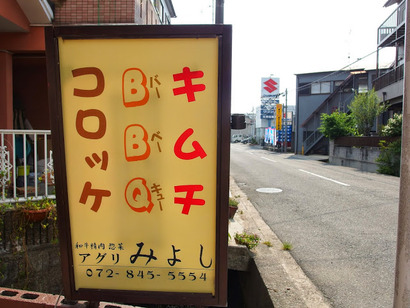 キムチ
BBQ
バーベキュー
コロッケ
和牛精肉 惣菜
アグリ みよし
072-845-5554